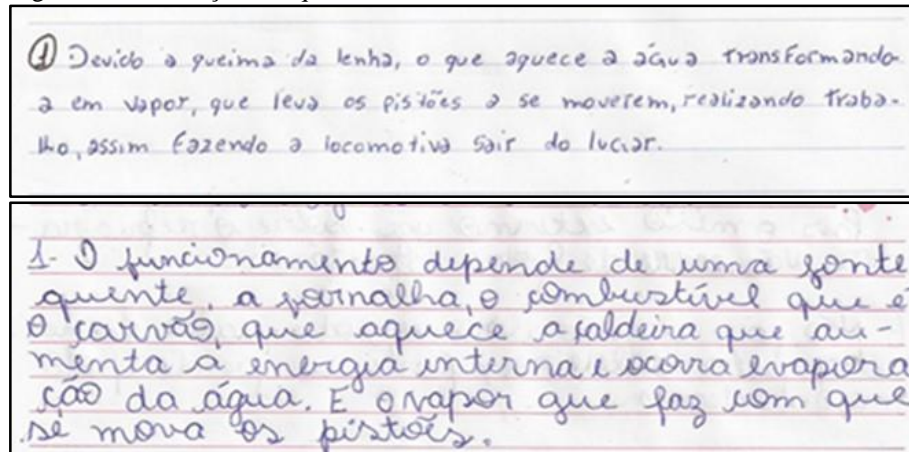 ① Devido a queima da lenha, o que aquece a água transformando-
a em vapor, que leva os pistões a se moverem, realizando traba-
lho, assim fazendo a locomotiva sair do lugar.
1- O funcionamento depende de uma fonte
quente, a fornalha, o combustível que é
o carvão, que aquece a caldeira que au-
menta a energia interna e ocorra evapora
ção da água. E o vapor que faz com que
se mova os pistões.